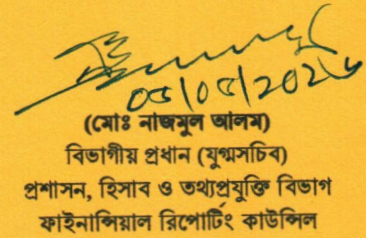 05/05/2026
(মোঃ নাজমুল আলম)
বিভাগীয় প্রধান (যুগ্মসচিব)
প্রশাসন, হিসাব ও তথ্যপ্রযুক্তি বিভাগ
ফাইনান্সিয়াল রিপোর্টিং কাউন্সিল